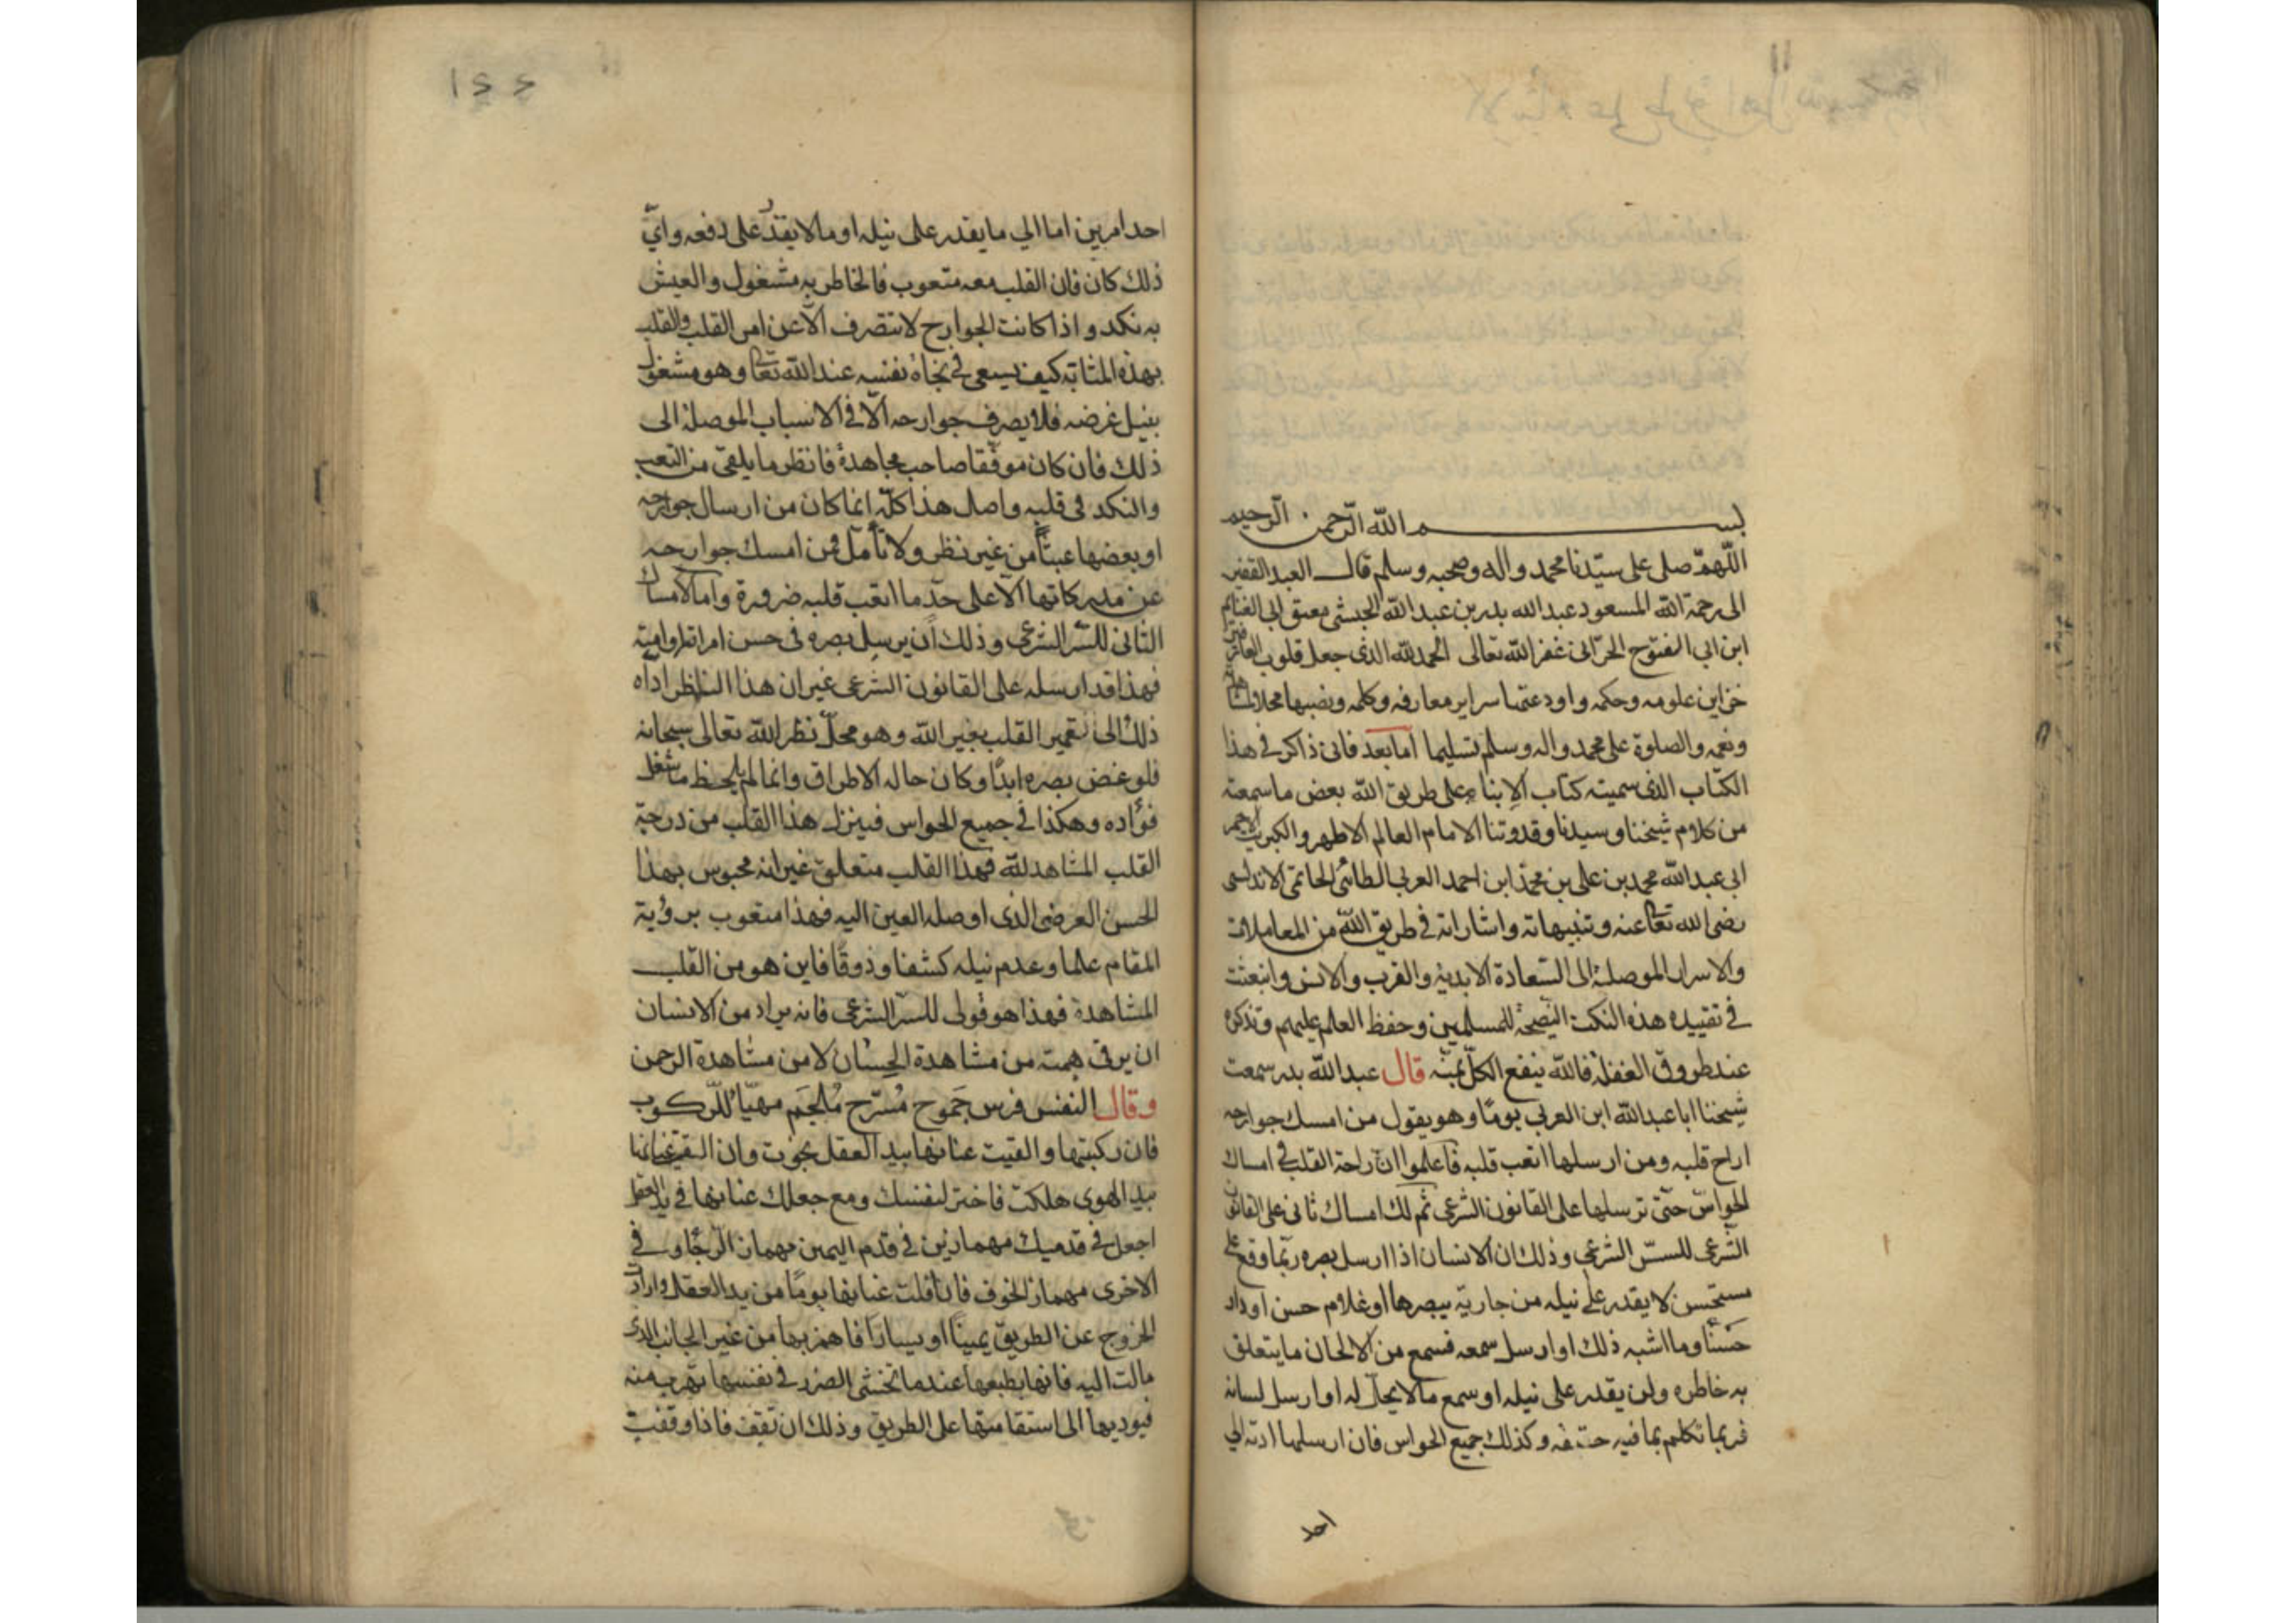 بسم الله الرحمن الرحيم
اللهمّ صلى على سيّدنا محمد واله وصحبه وسلم قال العبد الفقير
الى رحمة الله المسعود عبد الله بدر بن عبد الله الحبشي معتق ابي الغنايم
ابن ابي الفتوح الحرّانى غفر الله تعالى الحمد لله الذى جعل قلوب العارفين
خزاين علومه وحكمه واودعتها سراير معارفه وكلمه ونصبها محلا لمشاهدته
ونعمه والصلوة على محمد واله وسلم تسليما اما بعد فانى ذاكر فى هذا
الكتاب الذى سميته كتاب الإنباه على طريق الله بعض ما سمعته
من كلام شيخنا وسيدنا وقدوتنا الامام العالم الاطهر والكبريت الاحمر
ابى عبد الله محمد بن على بن محمد ابن احمد العربى الطائى الحاتمى الاندلسى
رضى الله تعا عنه وتنبيهاته واشاراته فى طريق الله من المعاملات
والاسرار الموصلة الى السّعادة الابدية والقرب والانس وانبعثت
فى تقييده هذه النكت النصيحة للمسلمين وحفظ العلم عليهم وتذكره
عند طروق الغفلة فالله ينفع الكلّ بمنّه قال عبد الله بدر سمعت
شيخنا ابا عبد الله ابن العربى يومًا وهو يقول من امسك جوارحه
اراح قلبه ومن ارسلها اتعب قلبه فاعلموا انّ راحة القلب فى امساك
الحواسّ حتّى ترسلها على القانون الشرعى ثم لك امساك ثانى على القانون
الشّرعى للسّر الشّرعى وذلك ان الانسان اذا ارسل بصره ربّما وقع على
مستحسن لا يقدر على نيله من جارية يبصرها او غلام حسن او دار
حسنًا وما اشبه ذلك او ارسل سمعه فسمع من الالحان ما يتعلق
به خاطره ولن يقدر على نيله او سمع ما لا يحلّ له او ارسل لسانه
فربما تكلم بما فيه حتفه وكذلك جميع الحواس فان ارسلها ادته الى
احد
١٤٤
احد امرين اما الي ما يقدر على نيله او ما لا يقدر على دفعه وايّ
ذلك كان فان القلب معه متعوب فالخاطر به مشغول والعيش
به نكد واذا كانت الجوارح لا تتصرف الّا عن امر القلب والقلب
بهذه المثابة كيف يسعى فى نجاة نفسه عند الله تعا وهو مشغول
بنيل غرضه فلا يصرف جوارحه الّا فى الاسباب الموصلة الى
ذلك فان كان موفّقا صاحب مجاهدة فانظر ما يلقى من التعب
والنكد فى قلبه واصل هذا كلّه انما كان من ارسال جوارحه
او بعضها عبثًا من غير نظر ولا تأمل فمن امسك جوارحه
عن حركاتها الّا على حدّ ما اتعب قلبه ضرورة واما الامساك
الثانى للسّر الشرعى وذلك أن يرسل بصره فى حسن امراته او امته
فهذا قد ارسله على القانون الشرعى غير ان هذا النظر اداه
ذلك الى تعمير القلب بغير الله وهو محلّ نظر الله تعالى سبحانه
فلو غض بصره ابدًا وكان حاله الاطراق وانما لم يلحظ ما شغل
فؤاده وهكذا فى جميع الحواس فينزل هذا القلب من درجة
القلب المشاهد لله فهذا القلب متعلق غير انه محبوس بهذا
الحسن العرضى الذى اوصله العين اليه فهذا متعوب برؤية
المقام علما وعدم نيله كشفا وذوقًا فاين هو من القلب
المشاهدة فهذا هو قولى للسّر الشّرعى فانه يراد من الانسان
ان يرقى همته من مشاهدة الحسان لا من مشاهدة الرحمن
وقال النفس فرس جَموح مُسرّج مُلجَم مهيّأ للرّكوب
فان ركبتها والقيت عنانها بيد العقل نجوت وان القيت عنانها
بيد الهوى هلكت فاختر لنفسك ومع جعلك عنانها فى يد العقل
اجعل فى قدميك مهمازين فى قدم اليمين مهماز الرّجا وفى
الاخرى مهماز الخوف فان افلت عنانها يومًا من يد العقل وارادت
الخروج عن الطريق يمينًا او يسارًا فاهمز بها من غير الجانب الذى
مالت اليه فانها بطبعها عند ما تخشى الضرر فى نفسها تهرب منه
فيوديها الى استقامتها على الطريق وذلك ان تقف فاذا وقفت